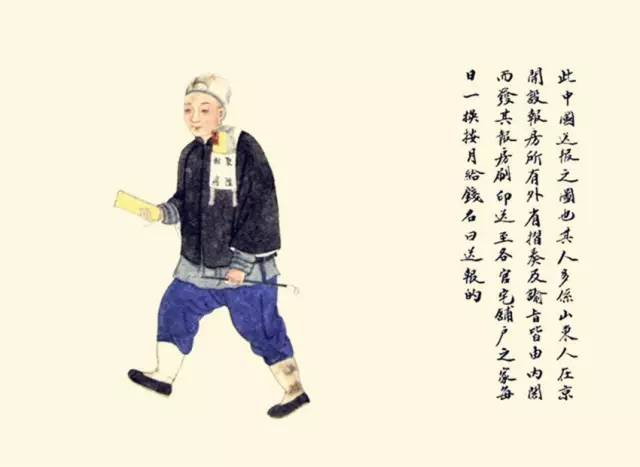 此中國送报之圖也其人多係山東人在京
開設報房所有外省摺奏及諭旨皆由内閣
而發其报房刷印送至各官宅舖户之家每
日一換按月給錢名曰送報的